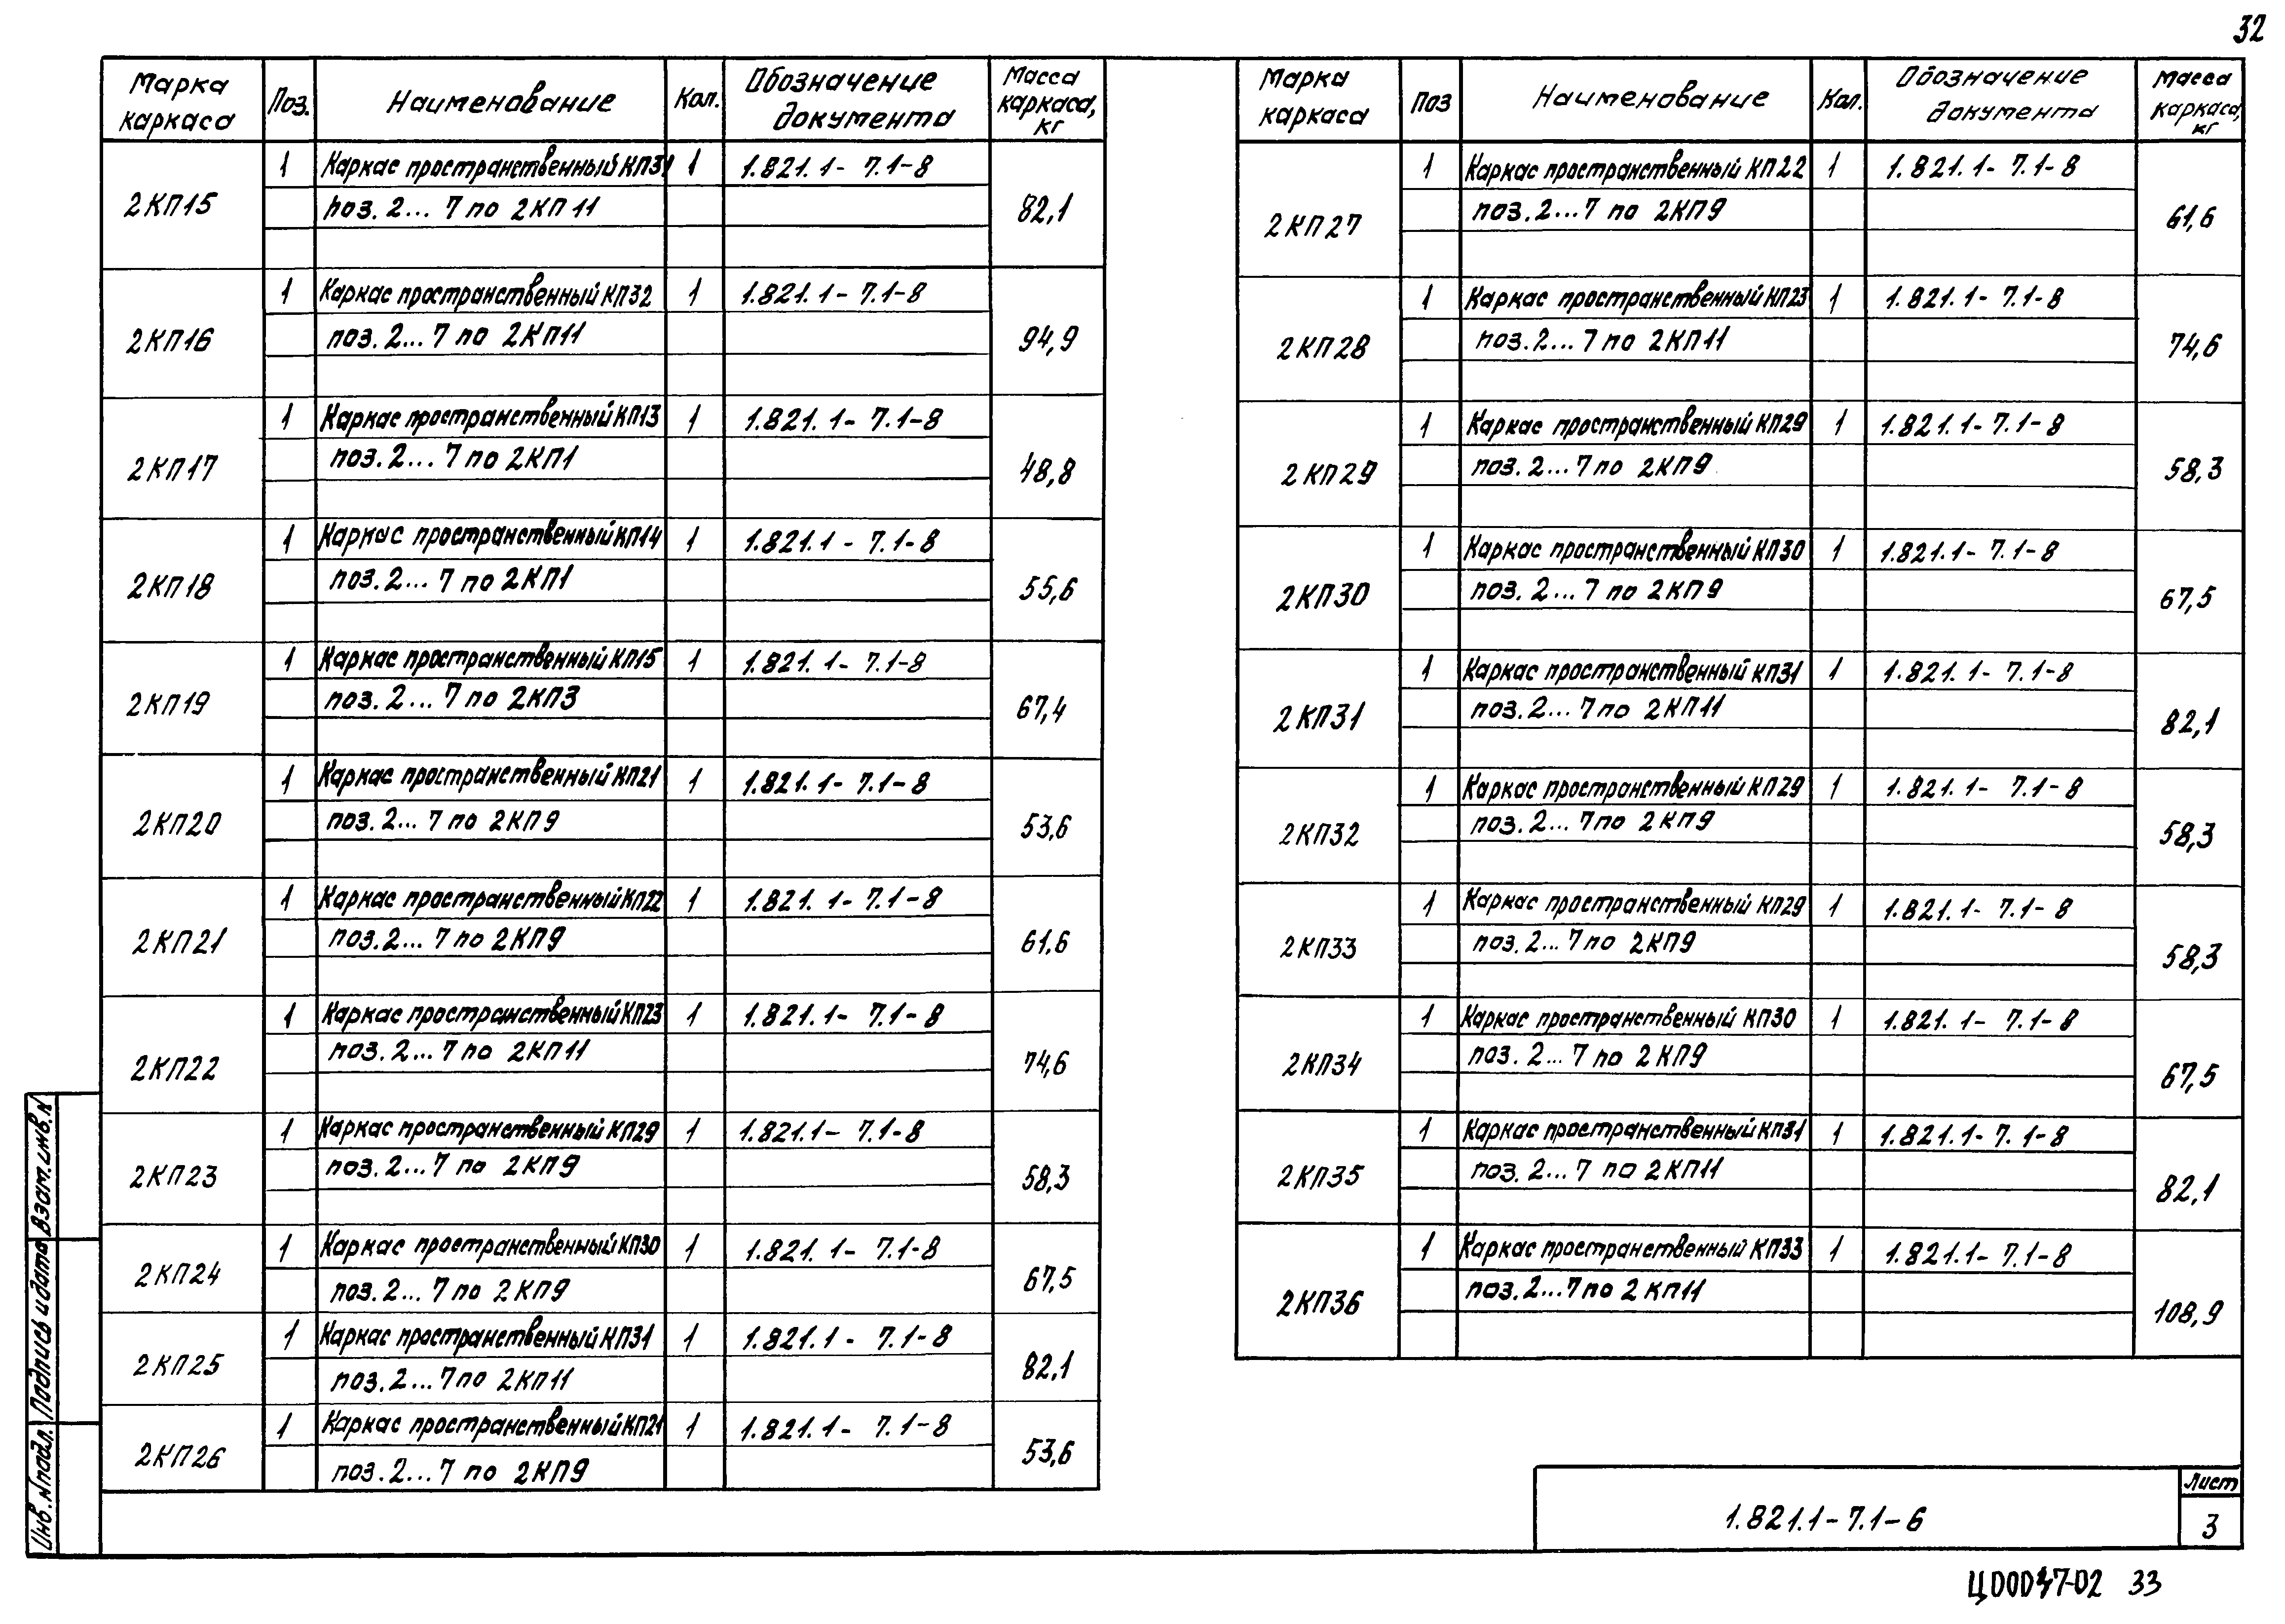 32
Марка каркаса | Поз. | Наименование | Кол. | Обозначение документа | Масса каркаса, кг
2КП15 | 1 | Каркас пространственный КП31 | 1 | 1.821.1-7.1-8 | 82,1
поз. 2...7 по 2КП11
2КП16 | 1 | Каркас пространственный КП32 | 1 | 1.821.1-7.1-8 | 94,9
поз. 2...7 по 2КП11
2КП17 | 1 | Каркас пространственный КП13 | 1 | 1.821.1-7.1-8 | 48,8
поз. 2...7 по 2КП1
2КП18 | 1 | Каркас пространственный КП14 | 1 | 1.821.1-7.1-8 | 55,6
поз. 2...7 по 2КП1
2КП19 | 1 | Каркас пространственный КП15 | 1 | 1.821.1-7.1-8 | 67,4
поз. 2...7 по 2КП3
2КП20 | 1 | Каркас пространственный КП21 | 1 | 1.821.1-7.1-8 | 53,6
поз. 2...7 по 2КП9
2КП21 | 1 | Каркас пространственный КП22 | 1 | 1.821.1-7.1-8 | 61,6
поз. 2...7 по 2КП9
2КП22 | 1 | Каркас пространственный КП23 | 1 | 1.821.1-7.1-8 | 74,6
поз. 2...7 по 2КП11
2КП23 | 1 | Каркас пространственный КП29 | 1 | 1.821.1-7.1-8 | 58,3
поз. 2...7 по 2КП9
2КП24 | 1 | Каркас пространственный КП30 | 1 | 1.821.1-7.1-8 | 67,5
поз. 2...7 по 2КП9
2КП25 | 1 | Каркас пространственный КП31 | 1 | 1.821.1-7.1-8 | 82,1
поз. 2...7 по 2КП11
2КП26 | 1 | Каркас пространственный КП21 | 1 | 1.821.1-7.1-8 | 53,6
поз. 2...7 по 2КП9
Марка каркаса | Поз | Наименование | Кол. | Обозначение документа | Масса каркаса, кг
2КП27 | 1 | Каркас пространственный КП22 | 1 | 1.821.1-7.1-8 | 61,6
поз. 2...7 по 2КП9
2КП28 | 1 | Каркас пространственный КП23 | 1 | 1.821.1-7.1-8 | 74,6
поз. 2...7 по 2КП11
2КП29 | 1 | Каркас пространственный КП29 | 1 | 1.821.1-7.1-8 | 58,3
поз. 2...7 по 2КП9
2КП30 | 1 | Каркас пространственный КП30 | 1 | 1.821.1-7.1-8 | 67,5
поз. 2...7 по 2КП9
2КП31 | 1 | Каркас пространственный КП31 | 1 | 1.821.1-7.1-8 | 82,1
поз. 2...7 по 2КП11
2КП32 | 1 | Каркас пространственный КП29 | 1 | 1.821.1-7.1-8 | 58,3
поз. 2...7 по 2КП9
2КП33 | 1 | Каркас пространственный КП29 | 1 | 1.821.1-7.1-8 | 58,3
поз. 2...7 по 2КП9
2КП34 | 1 | Каркас пространственный КП30 | 1 | 1.821.1-7.1-8 | 67,5
поз. 2...7 по 2КП9
2КП35 | 1 | Каркас пространственный КП31 | 1 | 1.821.1-7.1-8 | 82,1
поз. 2...7 по 2КП11
2КП36 | 1 | Каркас пространственный КП33 | 1 | 1.821.1-7.1-8 | 108,9
поз. 2...7 по 2КП11
Взам.инв.N
Подпись и дата
Инв.Nподл.
1.821.1-7.1-6
Лист
3
33